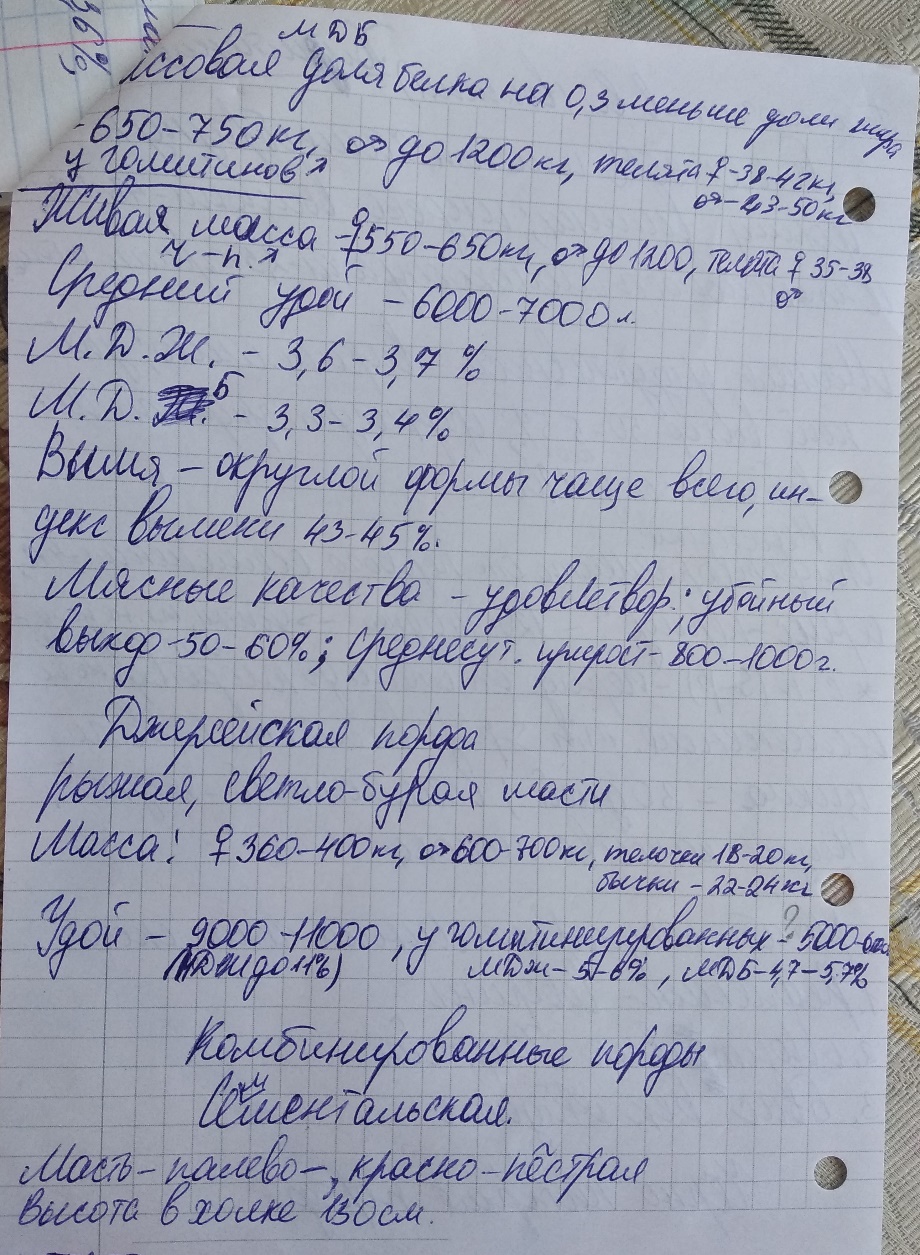 МДБ
ссовая доля белка на 0,3 меньше доли жира
-650-750кг, ♂ до 1200кг, телята ♀-38-42кг,
у голштинов ♂-43-50кг
Живая масса -♀550-650кг, ♂ до 1200, телята ♀ 35-38
ч-п. ♂
Средний удой - 6000-7000л.
М.Д.Ж. - 3,6-3,7%
М.Д. Б - 3,3-3,4%
Вымя - округлой формы чаще всего, ин-
декс вымени 43-45%.
Мясные качества - удовлетвор.; убойный
выход -50-60%; среднесут. прирост- 800-1000г.
Джерсейская порода
рыжая, светло-бурая масти
Масса: ♀ 360-400кг, ♂ 600-700кг, телочки 18-20кг,
бычки - 22-24кг
Удой - 9000-11000, у голштинизированных -? 5000-6
(МДЖ до 11%) МДЖ- 5-6%, МДБ-4,7-5,7%
Комбинированные породы
Симментальская.
Масть- палево-, красно-пёстрая
Высота в холке 130см.